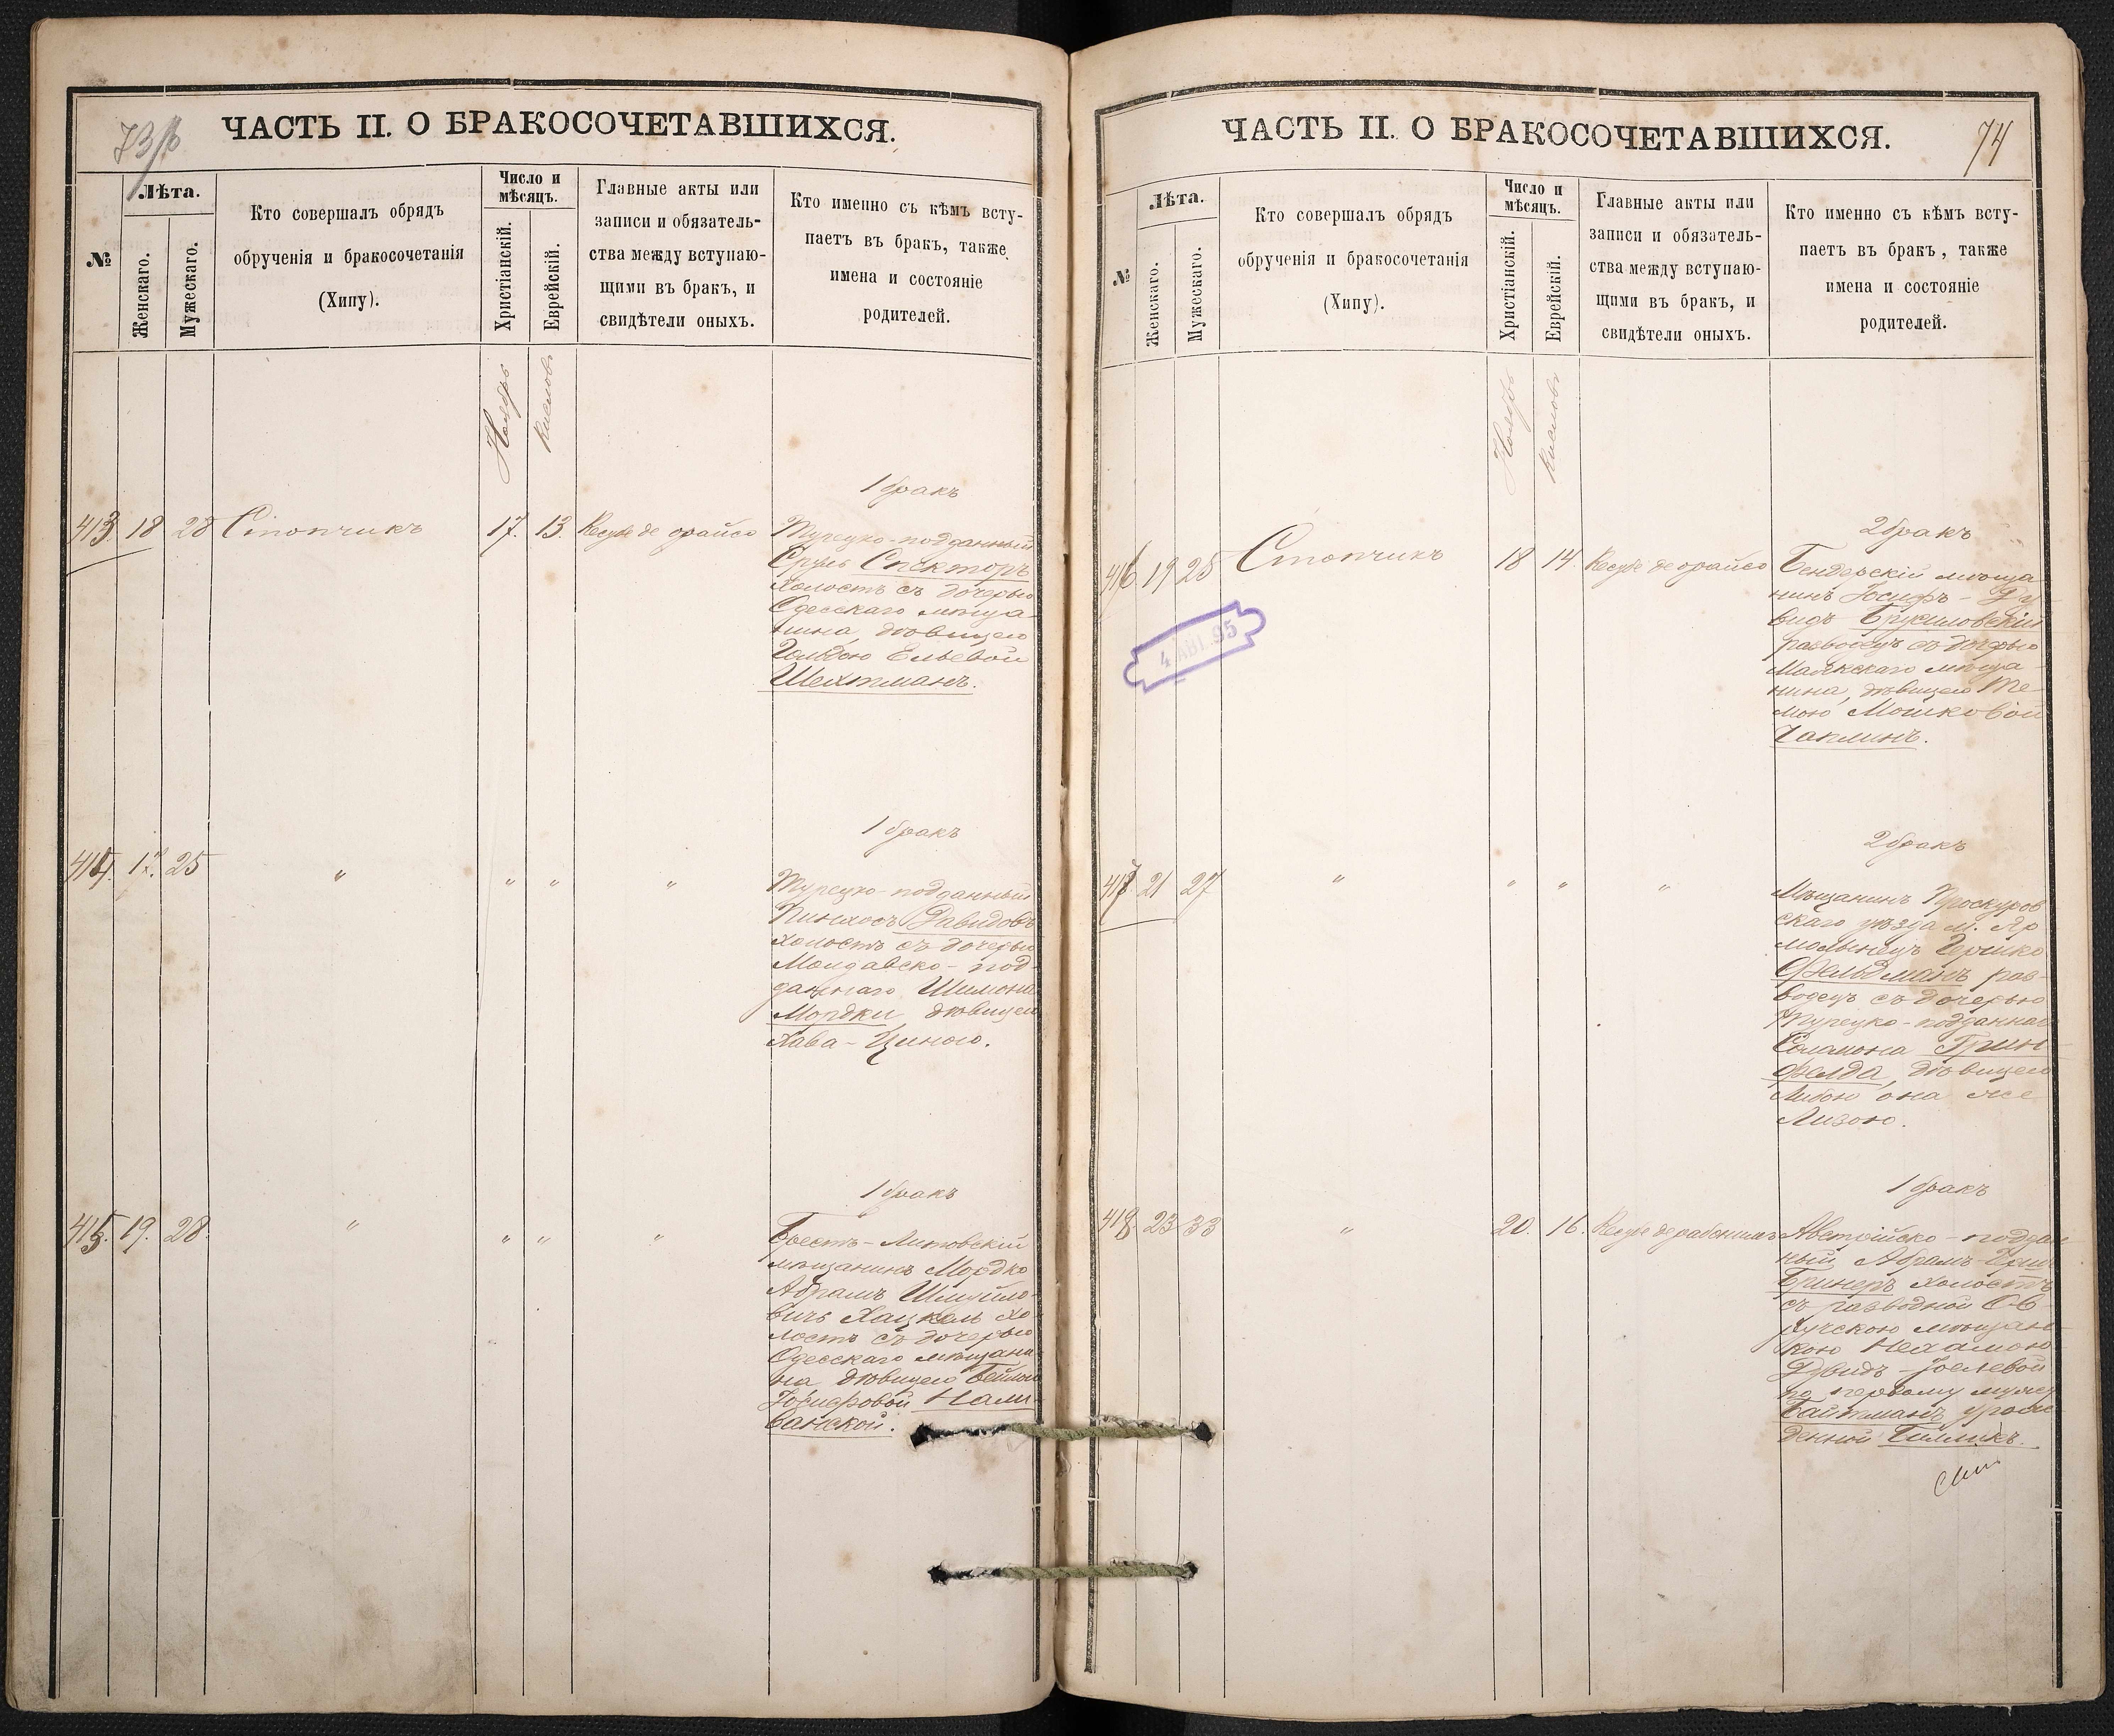 73/б
ЧАСТЬ II. О БРАКОСОЧЕТАВШИХСЯ.
№
Лѣта.
Женскаго.
Мужескаго.
Кто совершалъ обрядъ
обрученія и бракосочетанія
(Хипу).
Число и
мѣсяцъ.
Христіанскій.
Еврейскій.
Главные акты или
записи и обязатель-
ства между вступаю-
щими въ бракъ, и
свидѣтели оныхъ.
Кто именно съ кѣмъ всту-
паетъ въ бракъ, также
имена и состояніе
родителей.
Ноябрь
Кислевъ
1 бракъ
413 18 28 Стопчикъ 17. 13. Кесубе де орайсо
Турецко-подданный
Сруль Спекторъ
холостъ съ дочерью
Одесскаго мѣща-
нина, дѣвицею
Гольдою Ельевой
Шехтманъ.
1 бракъ
414. 17. 25 " " " "
Турецко-подданный
Пинхосъ Давидовъ
холостъ съ дочерью
Молдавско-под-
даннаго Шимона
Мордки дѣвицею
Хава-Циною.
1 бракъ
415. 19. 28. " " " "
Брестъ-Литовскій
мѣщанинъ Мордко
Абрамъ Шмуйло-
вичъ Хацкель хо-
лостъ съ дочерью
Одесскаго мѣщани-
на дѣвицею Бейлою
Іосифовой Нали-
банской.
ЧАСТЬ II. О БРАКОСОЧЕТАВШИХСЯ.
74
№
Лѣта.
Женскаго.
Мужескаго.
Кто совершалъ обрядъ
обрученія и бракосочетанія
(Хипу).
Число и
мѣсяцъ.
Христіанскій.
Еврейскій.
Главные акты или
записи и обязатель-
ства между вступаю-
щими въ бракъ, и
свидѣтели оныхъ.
Кто именно съ кѣмъ всту-
паетъ въ бракъ, также
имена и состояніе
родителей.
Ноябрь
Кислевъ
2 бракъ
416 19 25 Стопчикъ 18 14. Кесубе де орайсо
Бендерскій мѣща-
нинъ Іосифъ-Ду
видъ Брусиловскій
разводецъ съ дочерью
Маякскаго мѣща-
нина, дѣвицею Те-
мою Мошковой
Чаплинъ.
4 АВГ. 95
2 бракъ
417 21 27 " " " "
Мѣщанинъ Проскуров
скаго уѣзда м. Яр
молынецъ Гершко
Фельдманъ раз-
водецъ съ дочерью
Турецко-подданнаго
Соломона Грин-
фельда, дѣвицею
Либою она же
Лизою.
1 бракъ
418 23 33 " 20. 16. Кесубе дерабонимъ
Австрійско-поддан
ный Абрамъ
холостъ
съ разводной Ов-
ручскою мѣщан-
кою Нехамою
Дувидъ-Іоелевой
по первому мужу
урож
денной